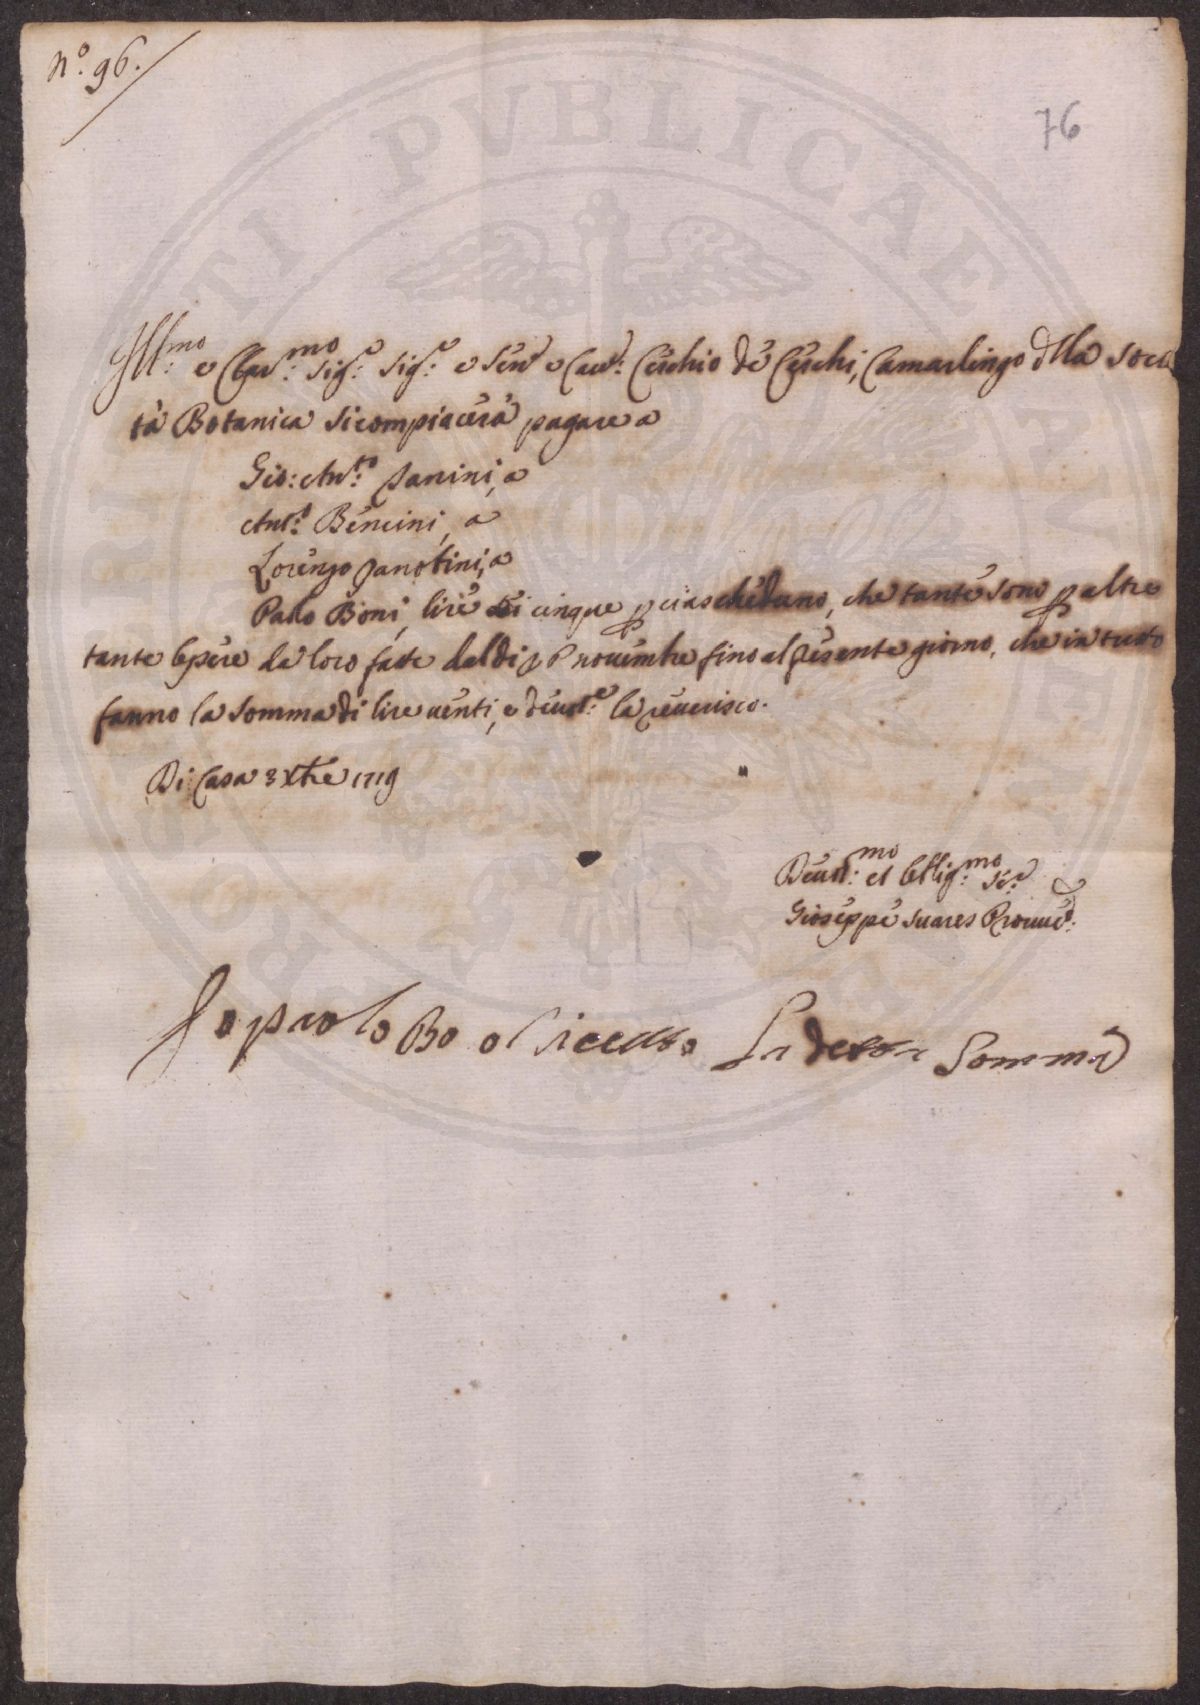 N.º 96.
76
Ill:mo e Clar:mo Sig:e Sig:e e Sen:e e Cav:e Cerchio de Cerchi, Camarlingo della Socie
tà Botanica si compiacerà pagare a
Gio: Ant:o Nanini, a
Ant:o Bencini, a
Lorenzo Zanobini, a
Paolo Boni, lire cinque p ciascheduno, che tante sono p altre
tante opere da loro fatte dal di novembre fino al presente giorno, che in tutto
fanno la somma di lire venti, e devot:e la reverisco.
Di Casa 3 Xbre 1719
Devot:mo et Obblig:mo Se:e
Giuseppe Suares Provved:e
Io paolo Bo o ricevto La detta Somma